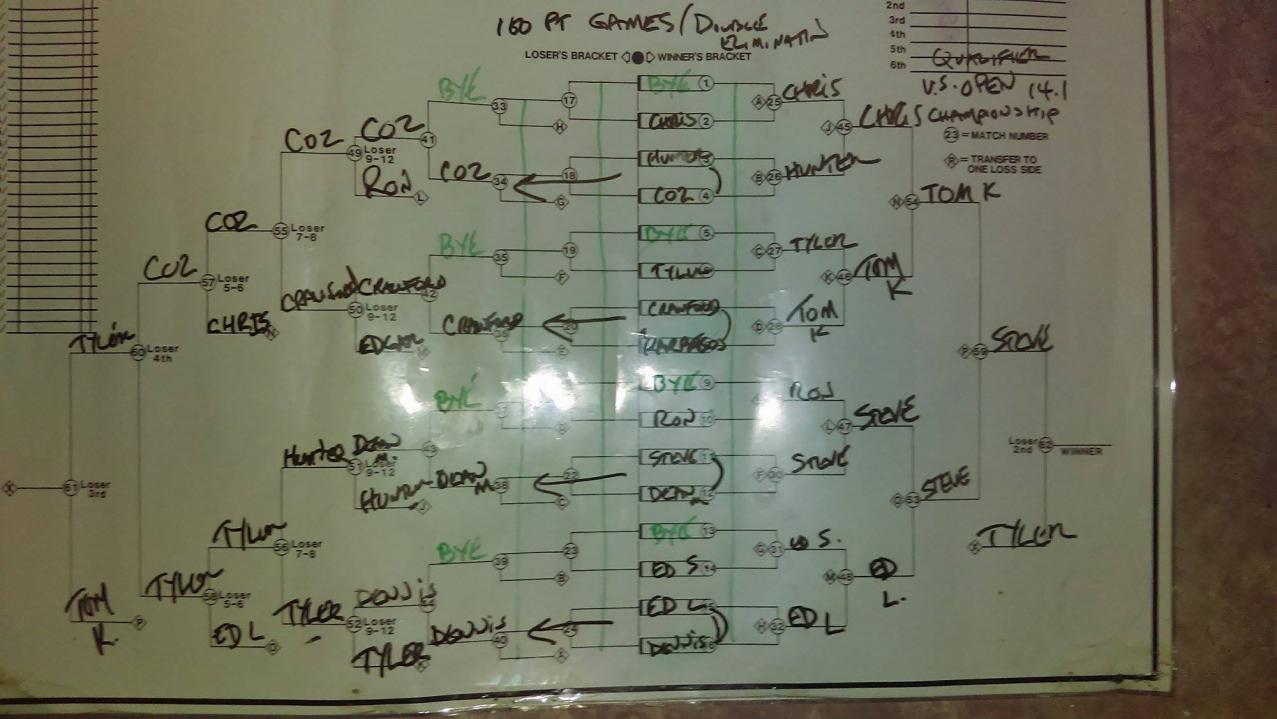 160 PT GAMES/DOUBLE
ELIMINATIN
LOSER'S BRACKET WINNER'S BRACKET
2nd
3rd
4th
5th
6th
QUALIFIER
U.S. OPEN 14.1
CHAMPIONSHIP
23 = MATCH NUMBER
R = TRANSFER TO
ONE LOSS SIDE
BYE 1
CHRIS 2
HUNTER
COZ 4
BYE 5
TYLER
CRAWFORD
BYE 9
RON 10
STEVE
DEAN
BYE 13
ED S
ED L
DENNIS
A 25 CHRIS
B 26 HUNTER
C 27 TYLER
D 28 TOM
K
RON
F 30 STEVE
G 31 S.
H 32 ED L
J 45 CHRIS
K 46 TOM
K
L 47 STEVE
M 48 ED
L.
N 54 TOM K
O 53 STEVE
P 59 STEVE
Loser
2nd
WINNER
X TYLER
BYE 33
17
H
COZ 34
18
G
BYE 35
19
F
CRAWFORD
20
E
BYE
DEAN
M 38
22
C
BYE 39
23
B
DENNIS 40
COZ 41
RON L
CRAWFORD
EDGAR
DEAN
M.
HUNTER J
DENNIS
TYLER
COZ 49 Loser
9-12
50 Loser
9-12
HUNTER Loser
9-12
TYLER 52 Loser
9-12
COZ 55 Loser
7-8
CHRIS
TYLER 56 Loser
7-8
ED L O
COZ 57 Loser
5-6
TYLER 58 Loser
5-6
TYLER 60 Loser
4th
TOM
K. P
X 61 Loser
3rd